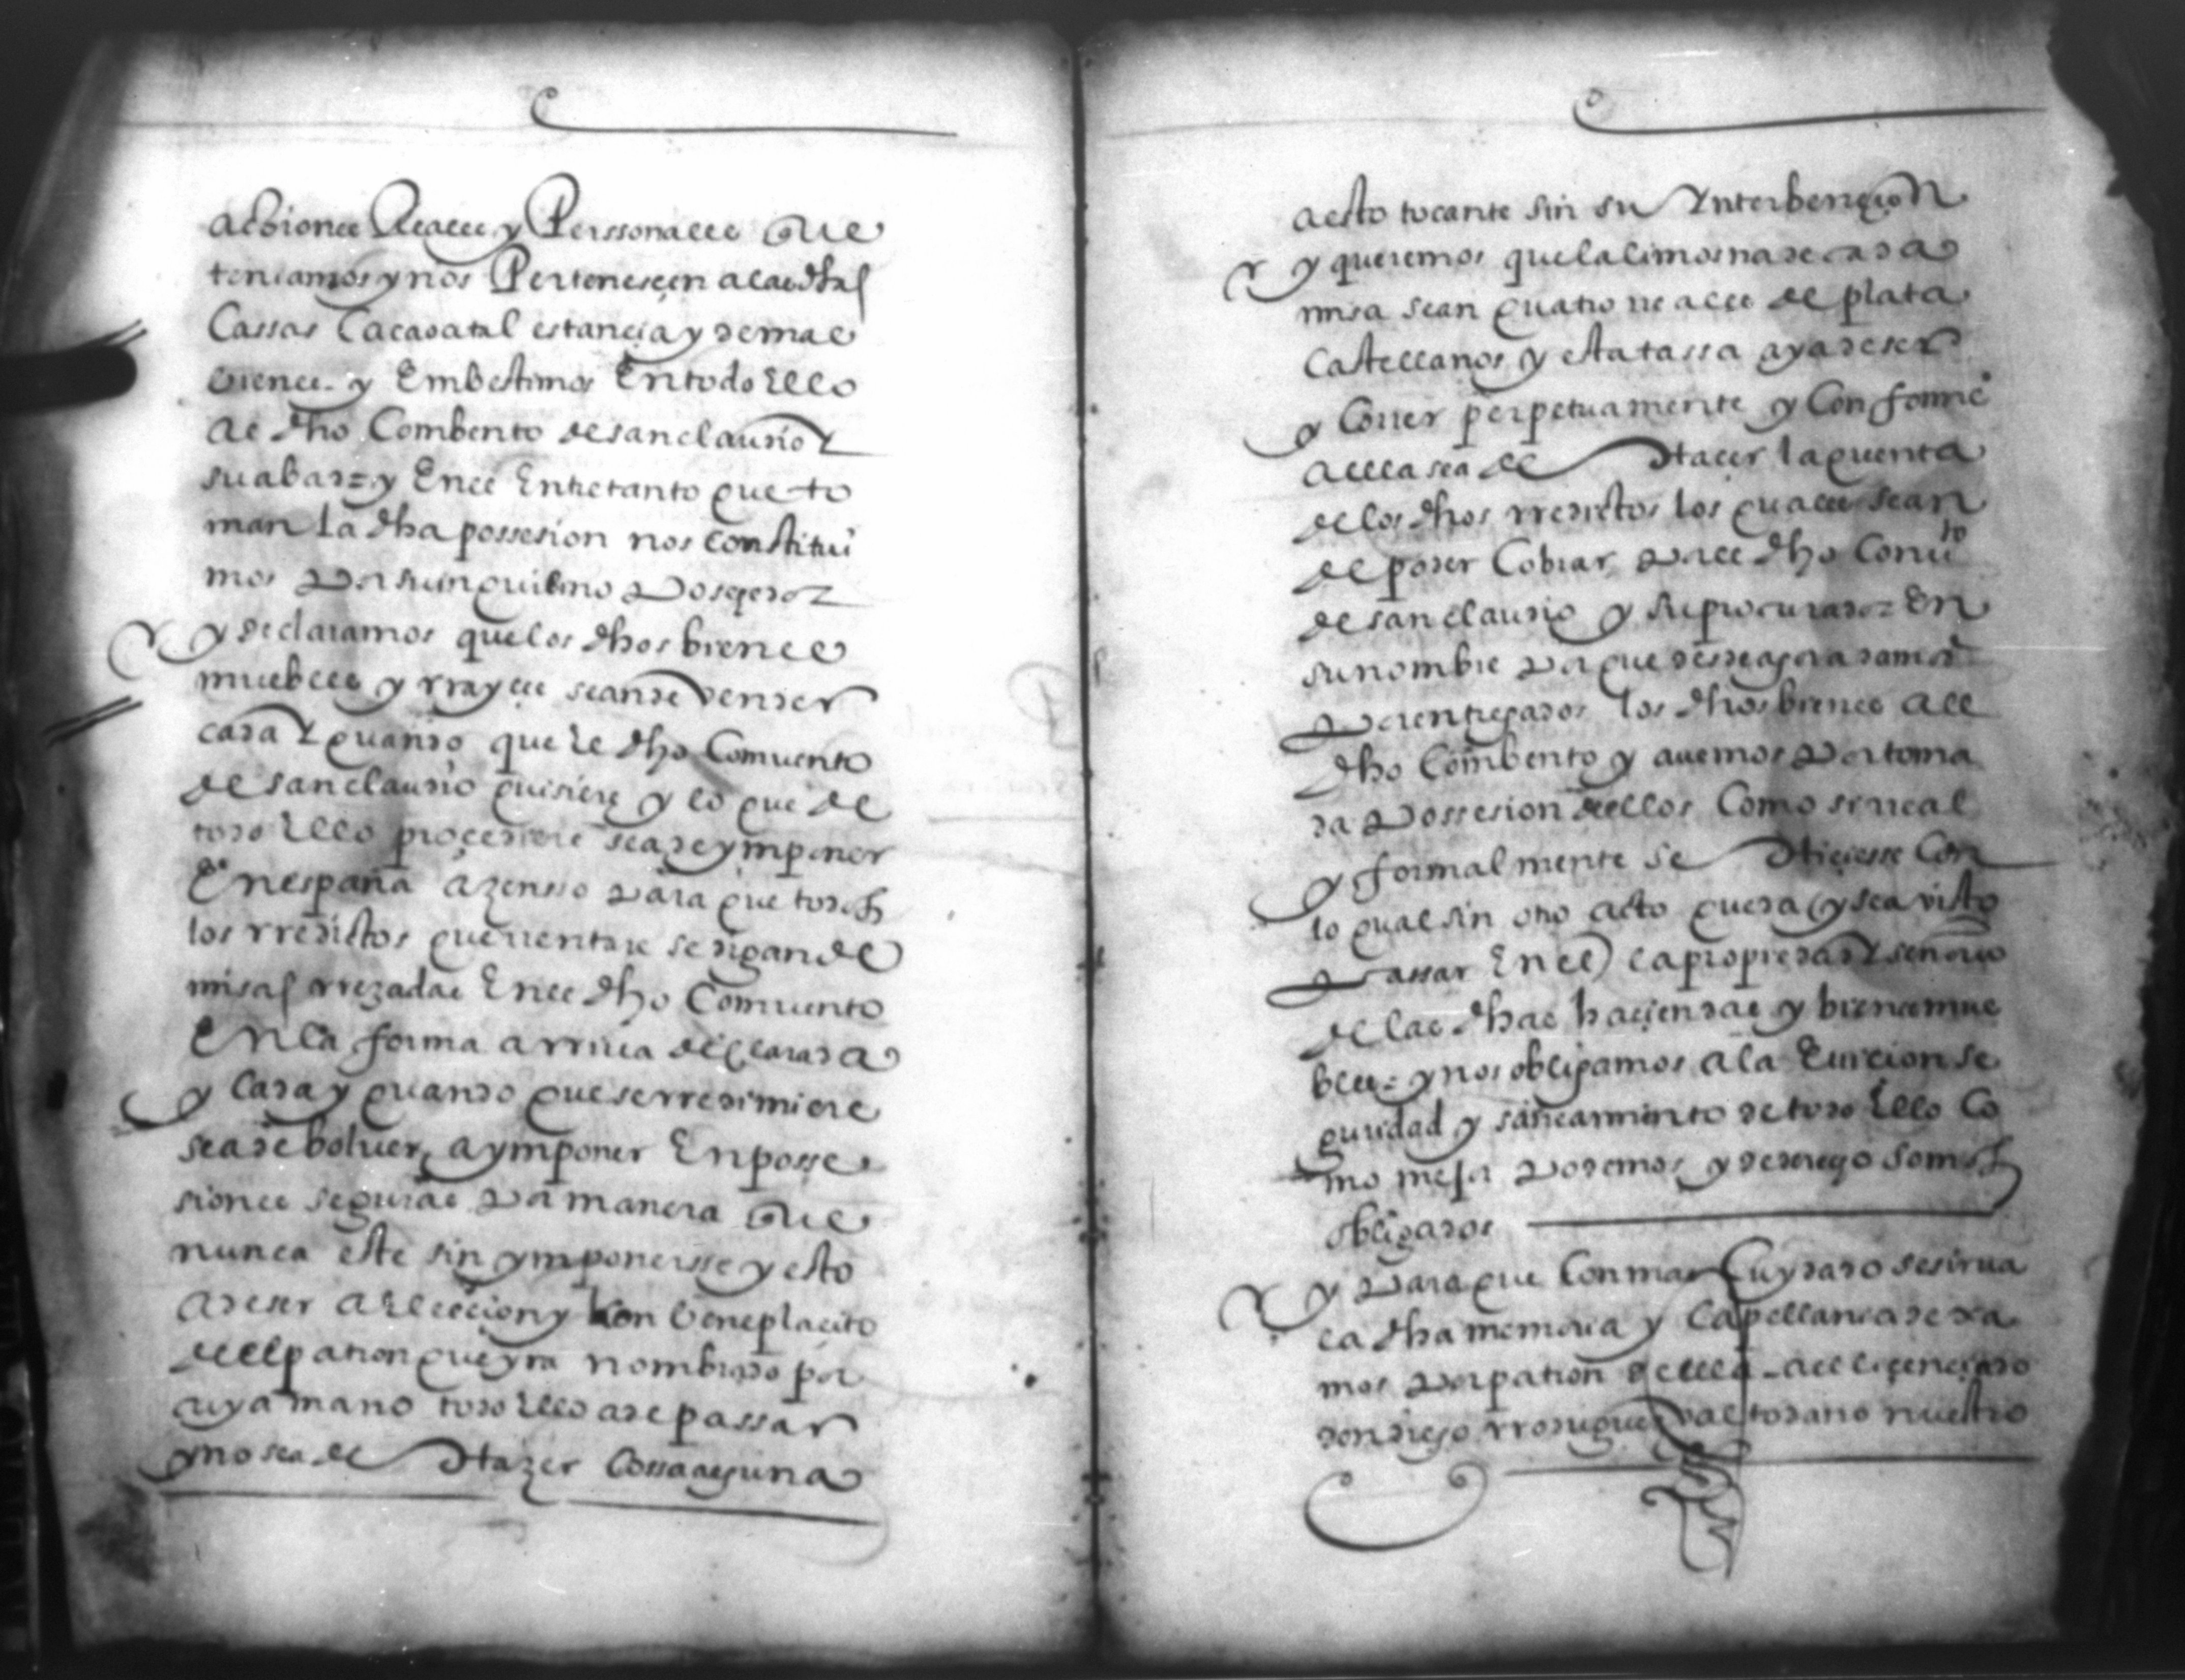 acciones Reales y Perssonales que
teniamos y nos Pertenesçen a las dhas
Cassas Cacaoatal estançia y demas
bienes y Embestimos En todo Ello
al dho Combento de san claudio y
su abad y En el Entretanto que to
man la dha possesion nos constitui
mos Por su inquilino Poseedor
y declaramos que los dhos bienes
muebles y rrayçes se an de vender
cada y quando que le dho Comvento
de san claudio quisiere y lo que de
todo Ello proçediere se a de ymponer
En españa a zensso Para que todos
los rreditos que rentare se digan de
misas rrezadas En el dho Comvento
En la forma arriua declarada
y Cada y quando que se rredimiere
se a de boluer a ymponer En posse
siones seguras Por manera que
nunca este sin ymponersse y esto
a de ser a Eleccion y Con beneplacito
del patron que yra nombrado por
cuya mano todo Ello a de passar
y no se a de Hazer Cossa alguna
a esto tocante sin su Ynterbençion
y queremos que la limosna de cada
misa sean quatro rreales de plata
Castellanos y esta tassa aya de ser
y Correr perpetuamente y Conforme
a ella se a de Haçer la quenta
de los dhos rreditos los quales se an
de poder Cobrar Por el dho Conuto
de san claudio y su procurador En
su nombre Por que desde agora damos
Por entregados los dhos bienes al
dho Combento y auemos Por toma
da Possesion dellos Como si rreal
y formalmente se Hiçiesse Con
lo qual sin otro acto queda y sea visto
Passar En el la propiedad y señorio
de las dhas haçiendas y bienes mue
bles y nos obligamos a la Euiccion se
guridad y saneamiento de todo Ello Co
mo mejor Podemos y de derecho somos
obligados
y Para que Con mas Cuydado se sirua
la dha memoria y Capellania dexa
mos Por patron della al liçençiado
don diego rrodriguez valtodano nuestro